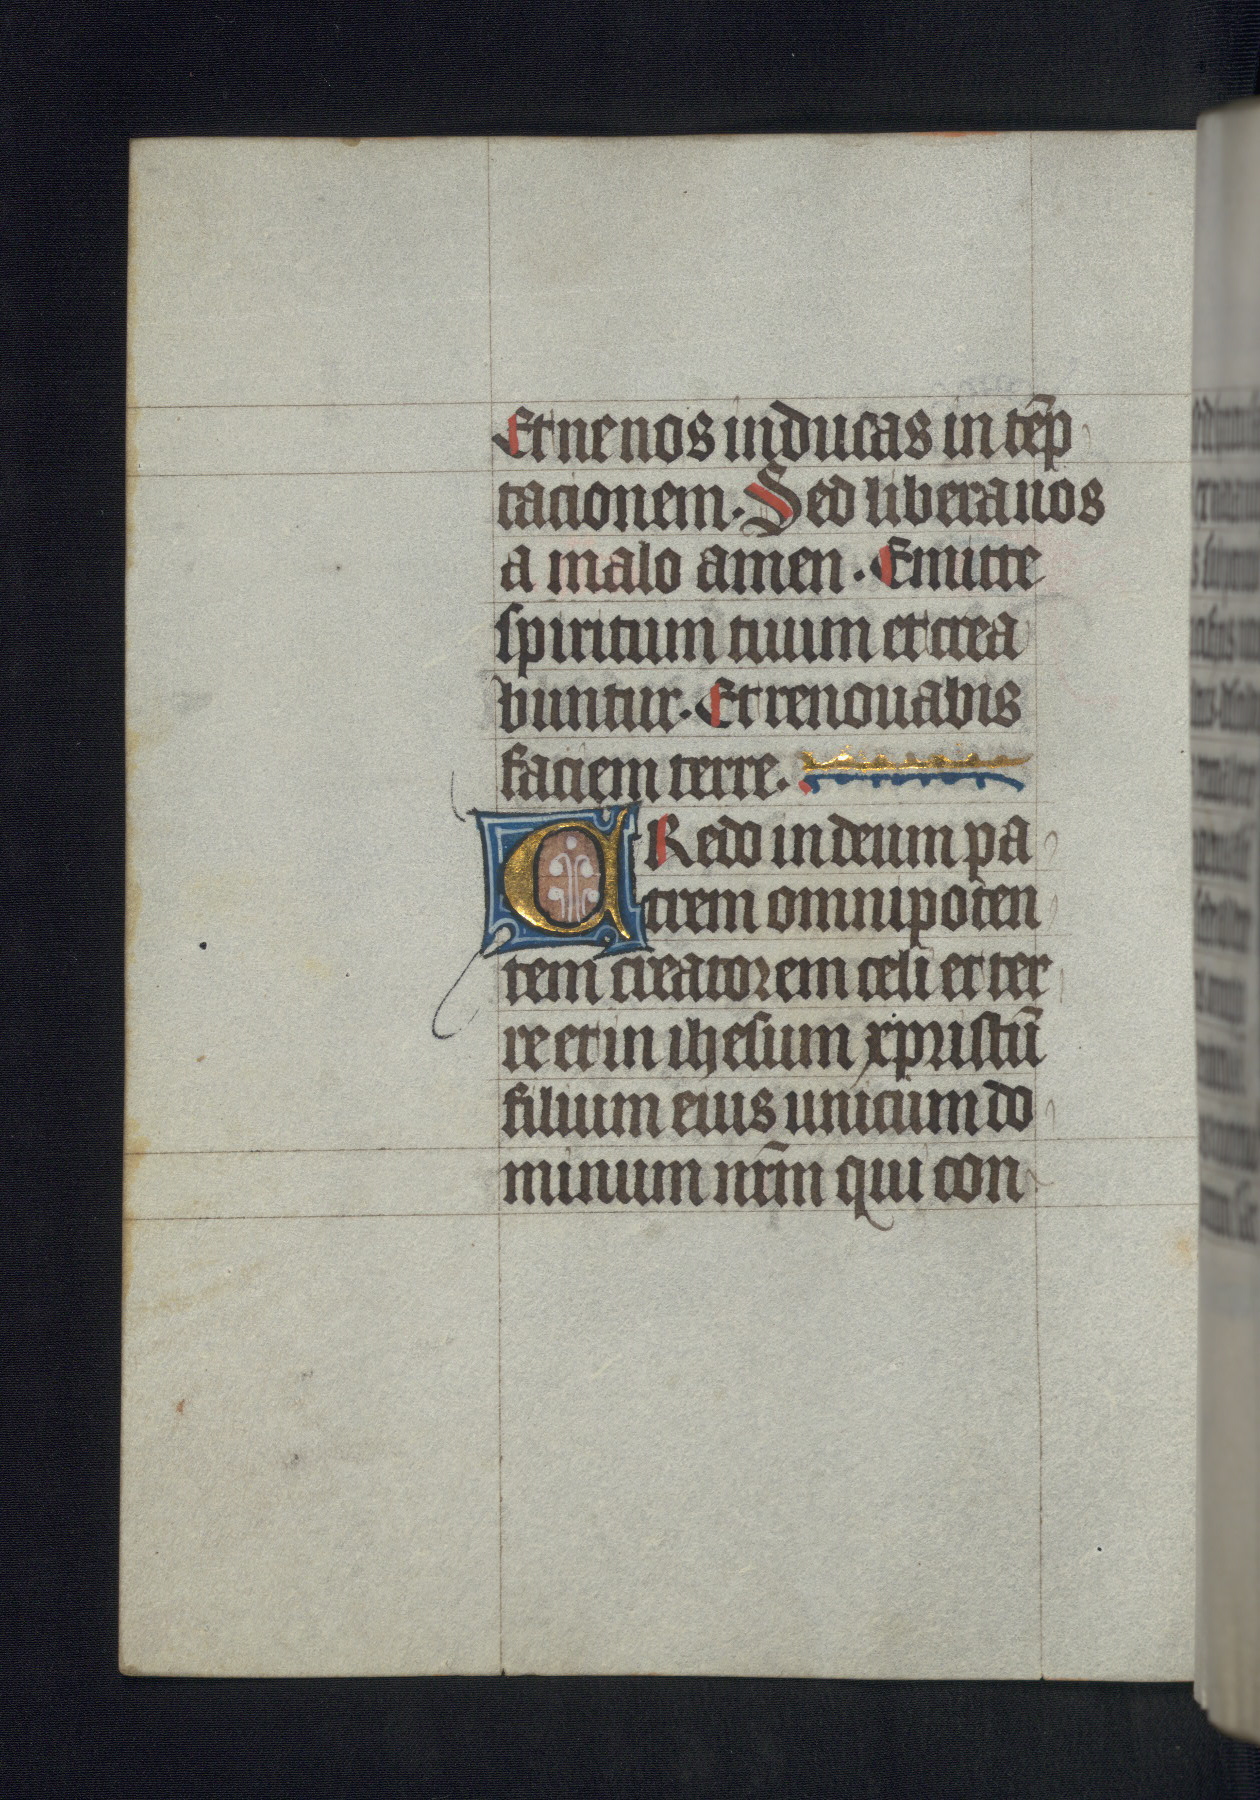 Et ne nos inducas in te̅p
tacionem. Sed libera nos
a malo amen. Emitte
spiritum tuum et crea
buntur. Et renouabis
faciem terre.
CRedo in deum pa
trem omnipoten
tem creatorem celi et ter
re et in ihesum xpristu̅
filium eius unicum do
minum nr̅m qui con